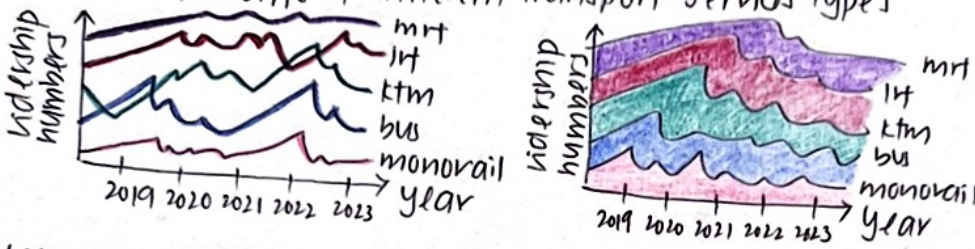 transport
types
ridership
numbers
mrt
lrt
ktm
bus
monorail
2019 2020 2021 2022 2023
year
ridership
numbers
mrt
lrt
ktm
bus
monorail
2019 2020 2021 2022 2023
year